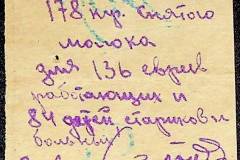 178 кгр. снятого
молока
для 136 евреев
работающих и
84 детей стариков и
больных